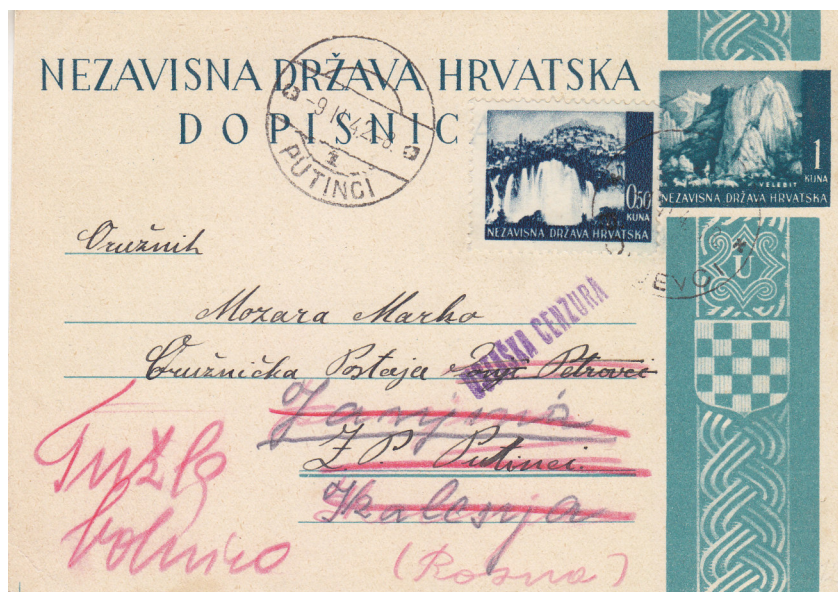 NEZAVISNA DRŽAVA HRVATSKA
DOPISNICA
-9 IV 42-8
1
PUTINCI
0,50
KUNA
NEZAVISNA DRŽAVA HRVATSKA
1
KUNA
VELEBIT
NEZAVISNA DRŽAVA HRVATSKA
U
Oružnik
Mozara Marko
Oružnička Postaja Donji Petrovci
CENZURA
Z. P. Putinci.
Kalesija
Tuzla
bolnica
(Bosna)